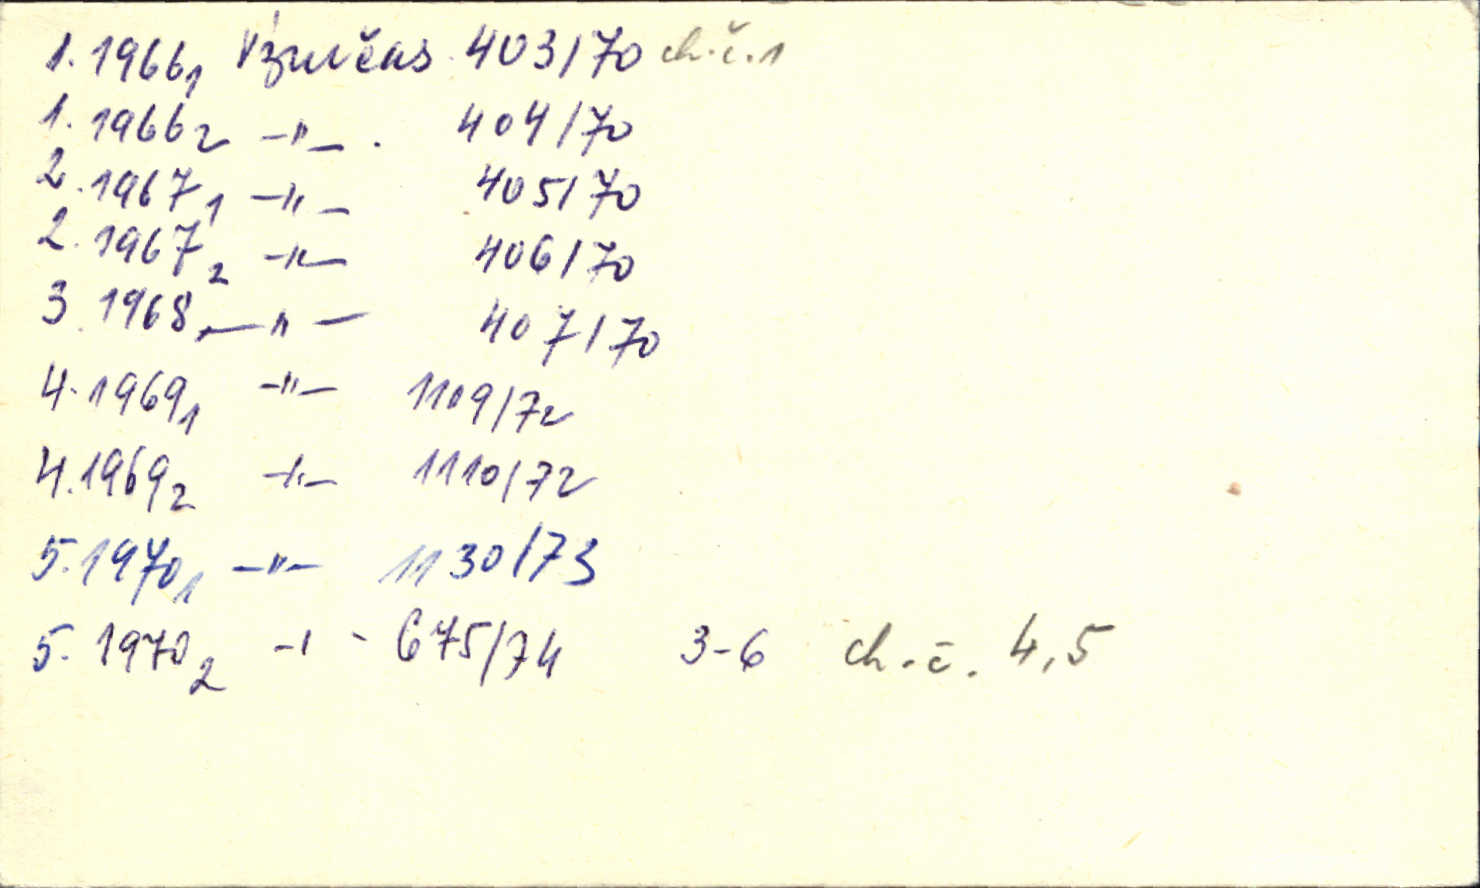 1. 1966₁ Vzručas 403/70 ch.č.1
1. 1966₂ -"- . 404/70
2. 1967₁ -"- 405/70
2. 1967₂ -"- 406/70
3. 1968, -"- 407/70
4. 1969₁ -"- 1109/72
4. 1969₂ -"- 1110/72
5. 1970₁ -"- 1130/73
5. 1970₂ -"- 675/74 3-6 ch.č. 4,5